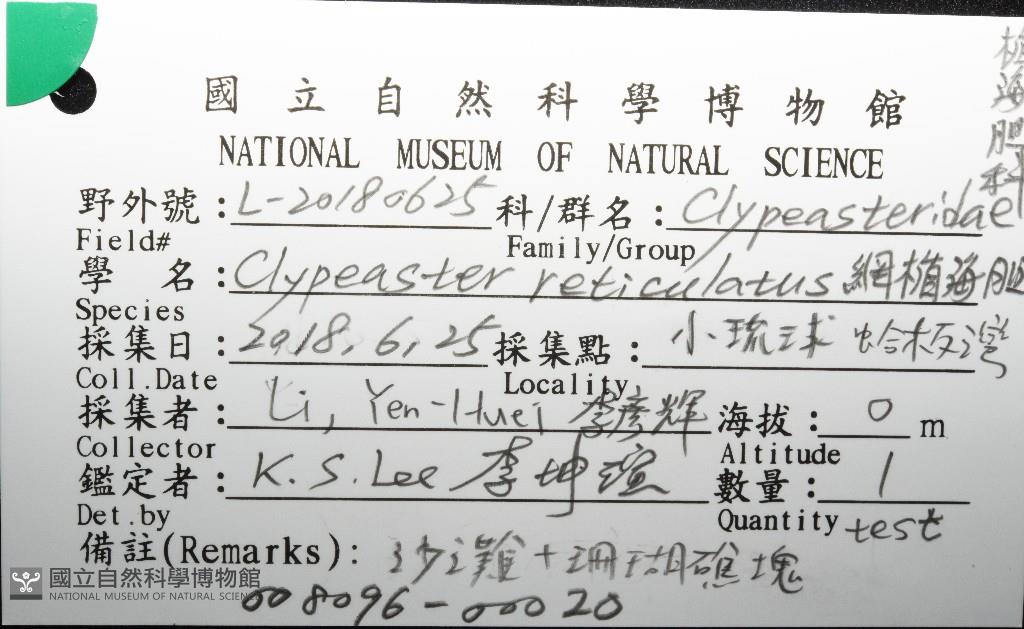 國立自然科學博物館
NATIONAL MUSEUM OF NATURAL SCIENCE
野外號：L-20180625 科/群名：Clypeasteridae 楯海胆科
Field# Family/Group
學 名：Clypeaster reticulatus 網楯海胆
Species
採集日：2018.6.25 採集點：小琉球 蛤板灣
Coll.Date Locality
採集者：Li, Yen-Huei 李彥輝 海拔：0 m
Collector Altitude
鑑定者：K.S.Lee 李坤瑄 數量：1
Det.by Quantity test
備註(Remarks)：沙灘+珊瑚礁塊
008096-00020
國立自然科學博物館
NATIONAL MUSEUM OF NATURAL SCIENCE